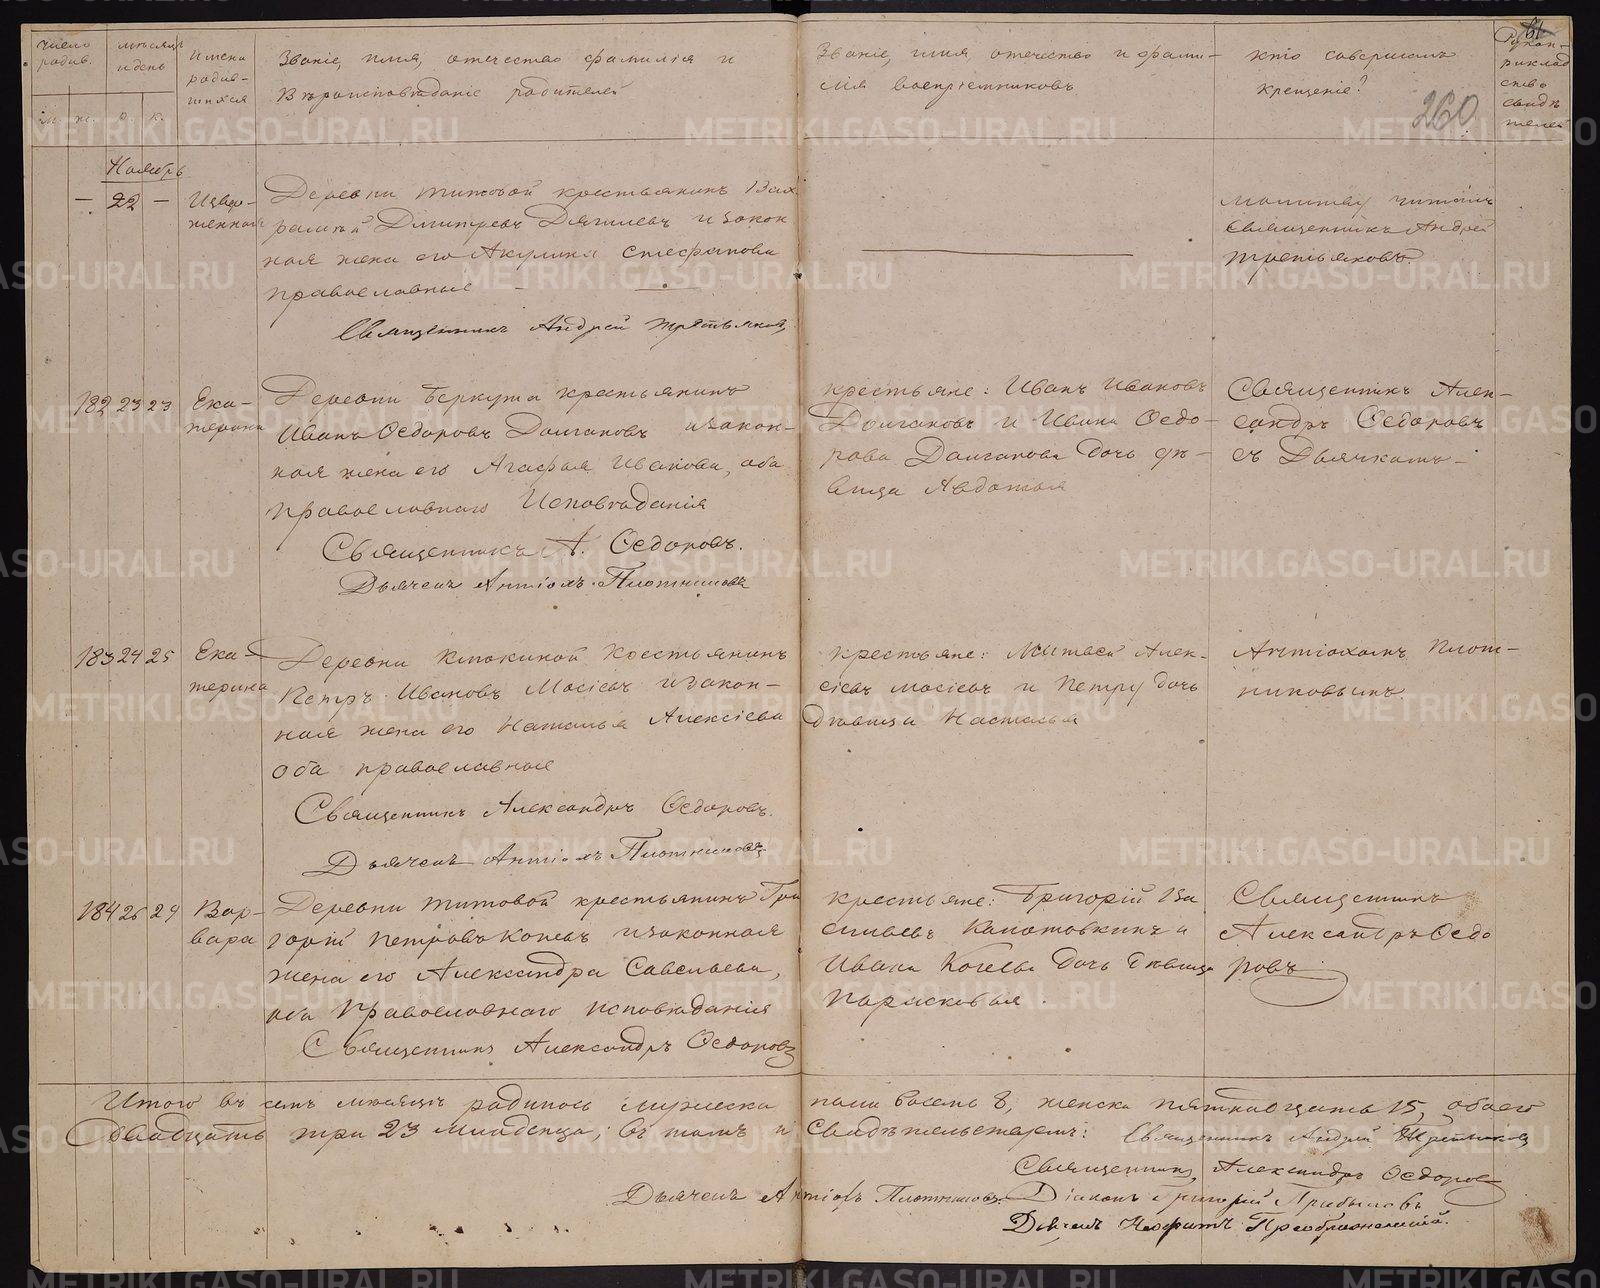 число родив.
мѣсяцъ и день
имена родив-
шихся
Званіе, имя, отчество фамилія и
Вѣроисповѣданіе родителей
Званіе, имя, отчество и фами-
лія воспріемниковъ
кто совершалъ
крещеніе?
Рукоп-
риклад
ство
свидѣ
телей
260
м. ж. р. к.
Ноябрь
22
Деревни Титовой крестьянинъ
Дмитріевъ Дягилевъ и закон
ная жена его Акулина Стефанова
православные
Священникъ Андрей Третьяковъ
молитву читалъ
Священникъ Андрей
Третьяковъ
182 23 23
Ека-
терина
Деревни Беркута крестьянинъ
Иванъ Ѳедоровъ Долгановъ и закон-
ная жена его Агафья Иванова, оба
православнаго Исповѣданія
Священникъ А. Ѳедоровъ.
Дьячекъ Антіохъ Плотниковъ
крестьяне: Иванъ Ивановъ
Долгановъ и Ивана Ѳедо-
рова Долганова дочь дѣ-
вица Авдотья
Священникъ Алек-
сандръ Ѳедоровъ
съ Дьячкомъ
183 24 25
Ека-
терина
Деревни крестьянинъ
Петръ Ивановъ Мосіевъ и закон-
ная жена его Наталья Алексіева
оба православные
Священникъ Александръ Ѳедоровъ.
Дьячекъ Антіохъ Плотниковъ
крестьяне: Матвей Алек-
сіевъ Мосіевъ и Петра дочь
дѣвица Настасья
Антіохомъ Плот-
никовымъ.
184 25 29
Вар-
вара
Деревни Титовой крестьянинъ Гри
горій Петровъ Коневъ и законная
жена его Александра Савельева,
оба Православнаго исповѣданія
Священникъ Александръ Ѳедоровъ
крестьяне: Григорій Ва
сильевъ и
Ивана дочь дѣвица
Парасковья.
Священникъ
Александръ Ѳедо
ровъ
Итого въ семъ мѣсяцѣ родилось мужеска пола восемь 8, женска пятнадцать 15, обоего
двадцать три 23 младенца; въ томъ и свидѣтельствуемъ: Священникъ Андрей Третьяковъ
Священникъ Александръ Ѳедоровъ
Дьячекъ Антіохъ Плотниковъ. Діаконъ Григорій Прибыловъ
Дьячекъ Неофитъ Преображенскій.
METRIKI.GASO-URAL.RU